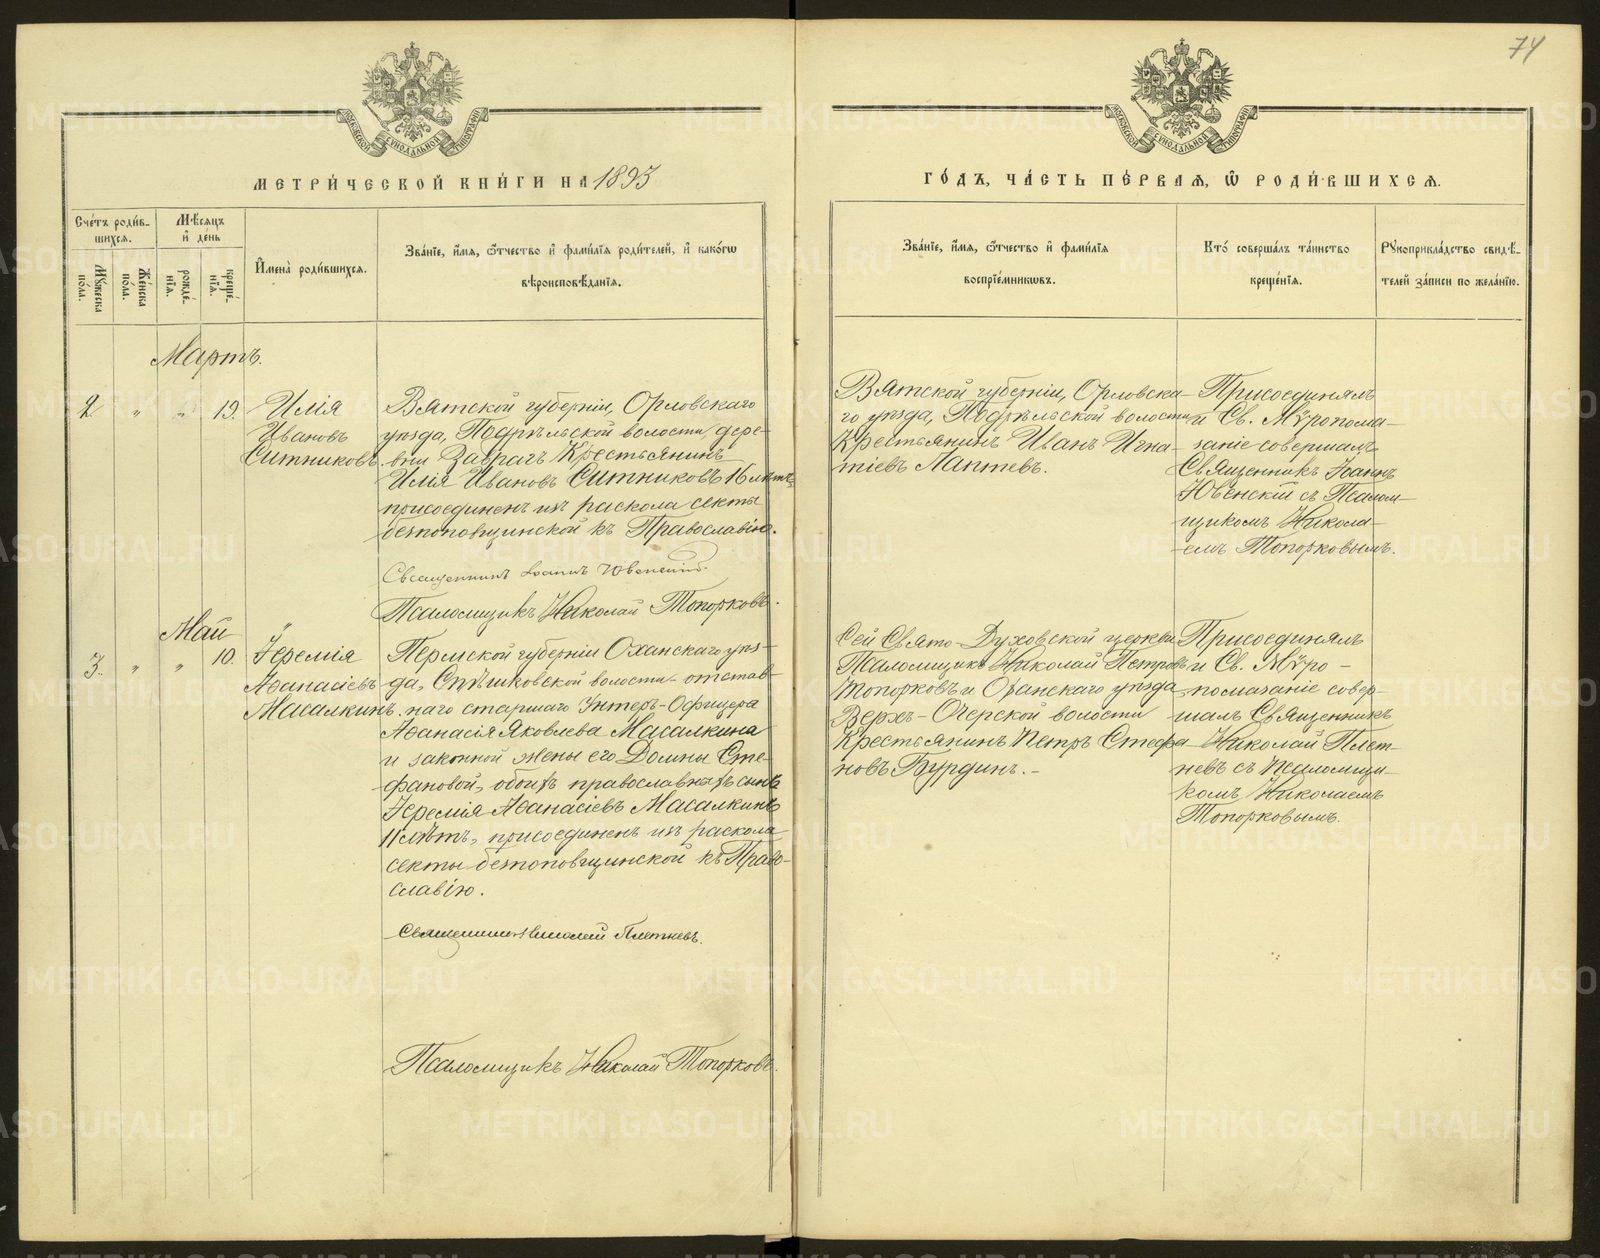 74
МОСКОВСКОЙ СУНОДАЛЬНОЙ ТИПОГРАФІИ
МОСКОВСКОЙ СУНОДАЛЬНОЙ ТИПОГРАФІИ
МЕТРИ́ЧЕСКОЙ КНИ́ГИ НА 1893
ГО́ДЪ, ЧА́СТЬ ПЕ́РВАЯ, Ѿ РОДИ́ВШИХСЯ.
Сче́тъ роди́в-
шихся.
Мꙋ́жеска
по́ла.
Же́нска
по́ла.
Мѣ́сяцъ
и҆ де́нь
рожде́-
нїя.
креще́-
нїя.
И҆мена̀ роди́вшихся.
Зва́нїе, и҆́мя, ѻ҆́тчество и҆ фами́лїя роди́телей, и҆ како́гѡ
вѣроисповѣ́данїя.
Зва́нїе, и҆́мя, ѻ҆́тчество и҆ фами́лїя
воспрїе́мникѡвъ.
Кто́ соверша́лъ та́инство
креще́нїя.
Рꙋкоприкла́дство свидѣ́-
телей за́писи по жела́нїю.
Мартъ.
2 " " 19.
Илія
Ивановъ
Ситниковъ.
Вятской губерніи, Орловскаго
уѣзда, Подрѣльской волости, дере-
вни Заврагъ Крестьянинъ
Илія Ивановъ Ситниковъ 16 лѣтъ,
присоединенъ изъ раскола секты
безпоповщинской къ Православію.
Священникъ Іоаннъ Ювенскій.
Псаломщикъ Николай Топорковъ.
Вятской губерніи, Орловска-
го уѣзда, Подрѣльской волости
Крестьянинъ Иванъ Игна-
тіевъ Лаптевъ.
Присоединялъ
и Св. Мѵропома-
заніе совершалъ
Священникъ Іоаннъ
Ювенскій съ Псалом-
щикомъ Никола-
емъ Топорковымъ.
Май "
3. " " 10.
Іеремія
Аѳанасіевъ
Масалкинъ.
Пермской губерніи Оханскаго уѣз-
да, Спѣшковской волости отстав-
наго старшаго Унтеръ-Офицера
Аѳанасія Яковлева Масалкина
и законной жены его Домны Сте-
фановой, обоихъ православныхъ сынъ
Іеремія Аѳанасіевъ Масалкинъ
11 лѣтъ, присоединенъ изъ раскола
секты безпоповщинской къ Право-
славію.
Священникъ Николай Плетневъ.
Псаломщикъ Николай Топорковъ.
Сей Свято-Духовской церкви
Псаломщикъ Николай Петровъ
Топорковъ и Оханскаго уѣзда
Верхъ-Очерской волости
Крестьянинъ Петръ Стефа-
новъ Бурдинъ.-
Присоединялъ
и Св. Мѵро-
помазаніе совер-
шалъ Священникъ
Николай Плет-
невъ съ Псаломщи-
комъ Николаемъ
Топорковымъ.
METRIKI.GASO-URAL.RU